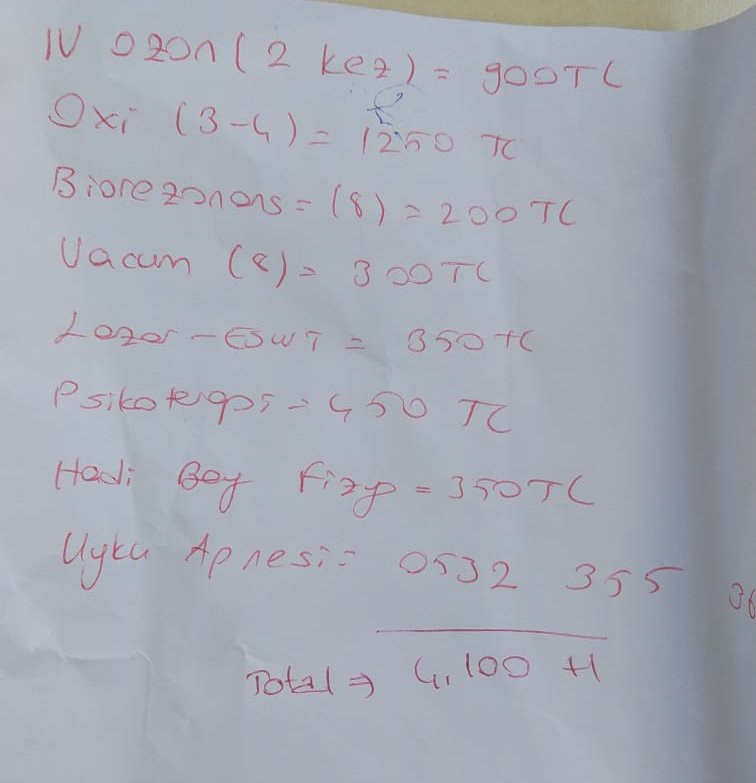 IV Ozon (2 kez) = 900 TL
Oxi (3-4) = 1250 TL
Biorezonans = (8) = 200 TL
Vacum (8) = 300 TL
Lazer - ESWT = 350 tl
Psikoterapi = 450 TL
Hadi Bey fizy = 350 TL
Uyku Apnesi = 0532 355 36
Total ⇒ 4,100 tl